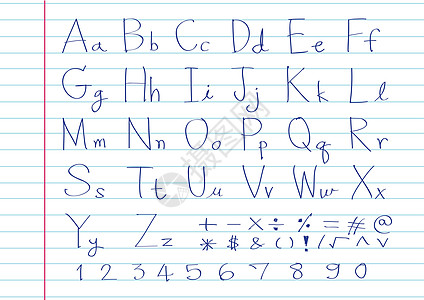 Aa Bb Cc Dd Ee Ff
Gg Hh Ii Jj Kk Ll
Mm Nn Oo Pp Qq Rr
Ss Tt Uu Vv Ww Xx
Yy Zz + - × ÷ % = # @
* $ & ( ) ! / √ ^ v
1 2 3 4 5 6 7 8 9 0